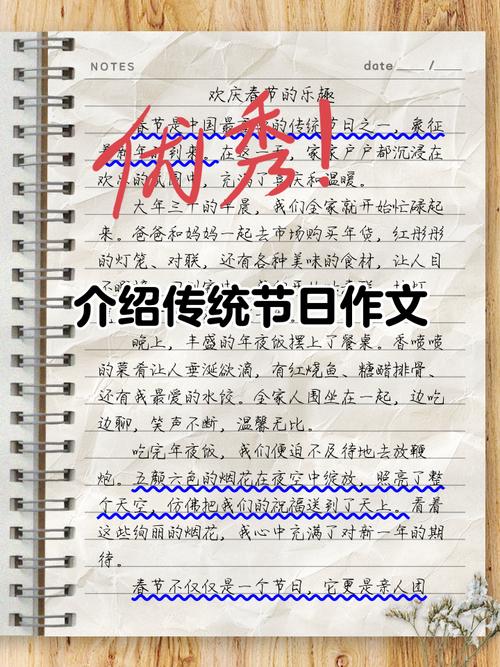 NOTES
date ____ / ____
欢庆春节的乐趣
优秀!
春节是中国最重要的传统节日之一，象征
到来。在这一天，家家户户都沉浸在
欢乐的氛围中，充满了喜庆和温暖。
大年三十的早晨，我们全家就开始忙碌起
来。爸爸和妈妈一起去市场购买年货，红彤彤
的灯笼、对联，还有各种美味的食材，让人目
介绍传统节日作文
晚上，丰盛的年夜饭摆上了餐桌。香喷喷
的菜肴让人垂涎欲滴，有红烧鱼、糖醋排骨、
还有我最爱的水饺。全家人围坐在一起，边吃
边聊，笑声不断，温馨无比。
吃完年夜饭，我们便迫不及待地去放鞭
炮。五颜六色的烟花在夜空中绽放，照亮了整
个天空，仿佛把我们的祝福送到了天上。看着
这些绚丽的烟花，我心中充满了对新一年的期
待。
春节不仅仅是一个节日，它更是亲人团